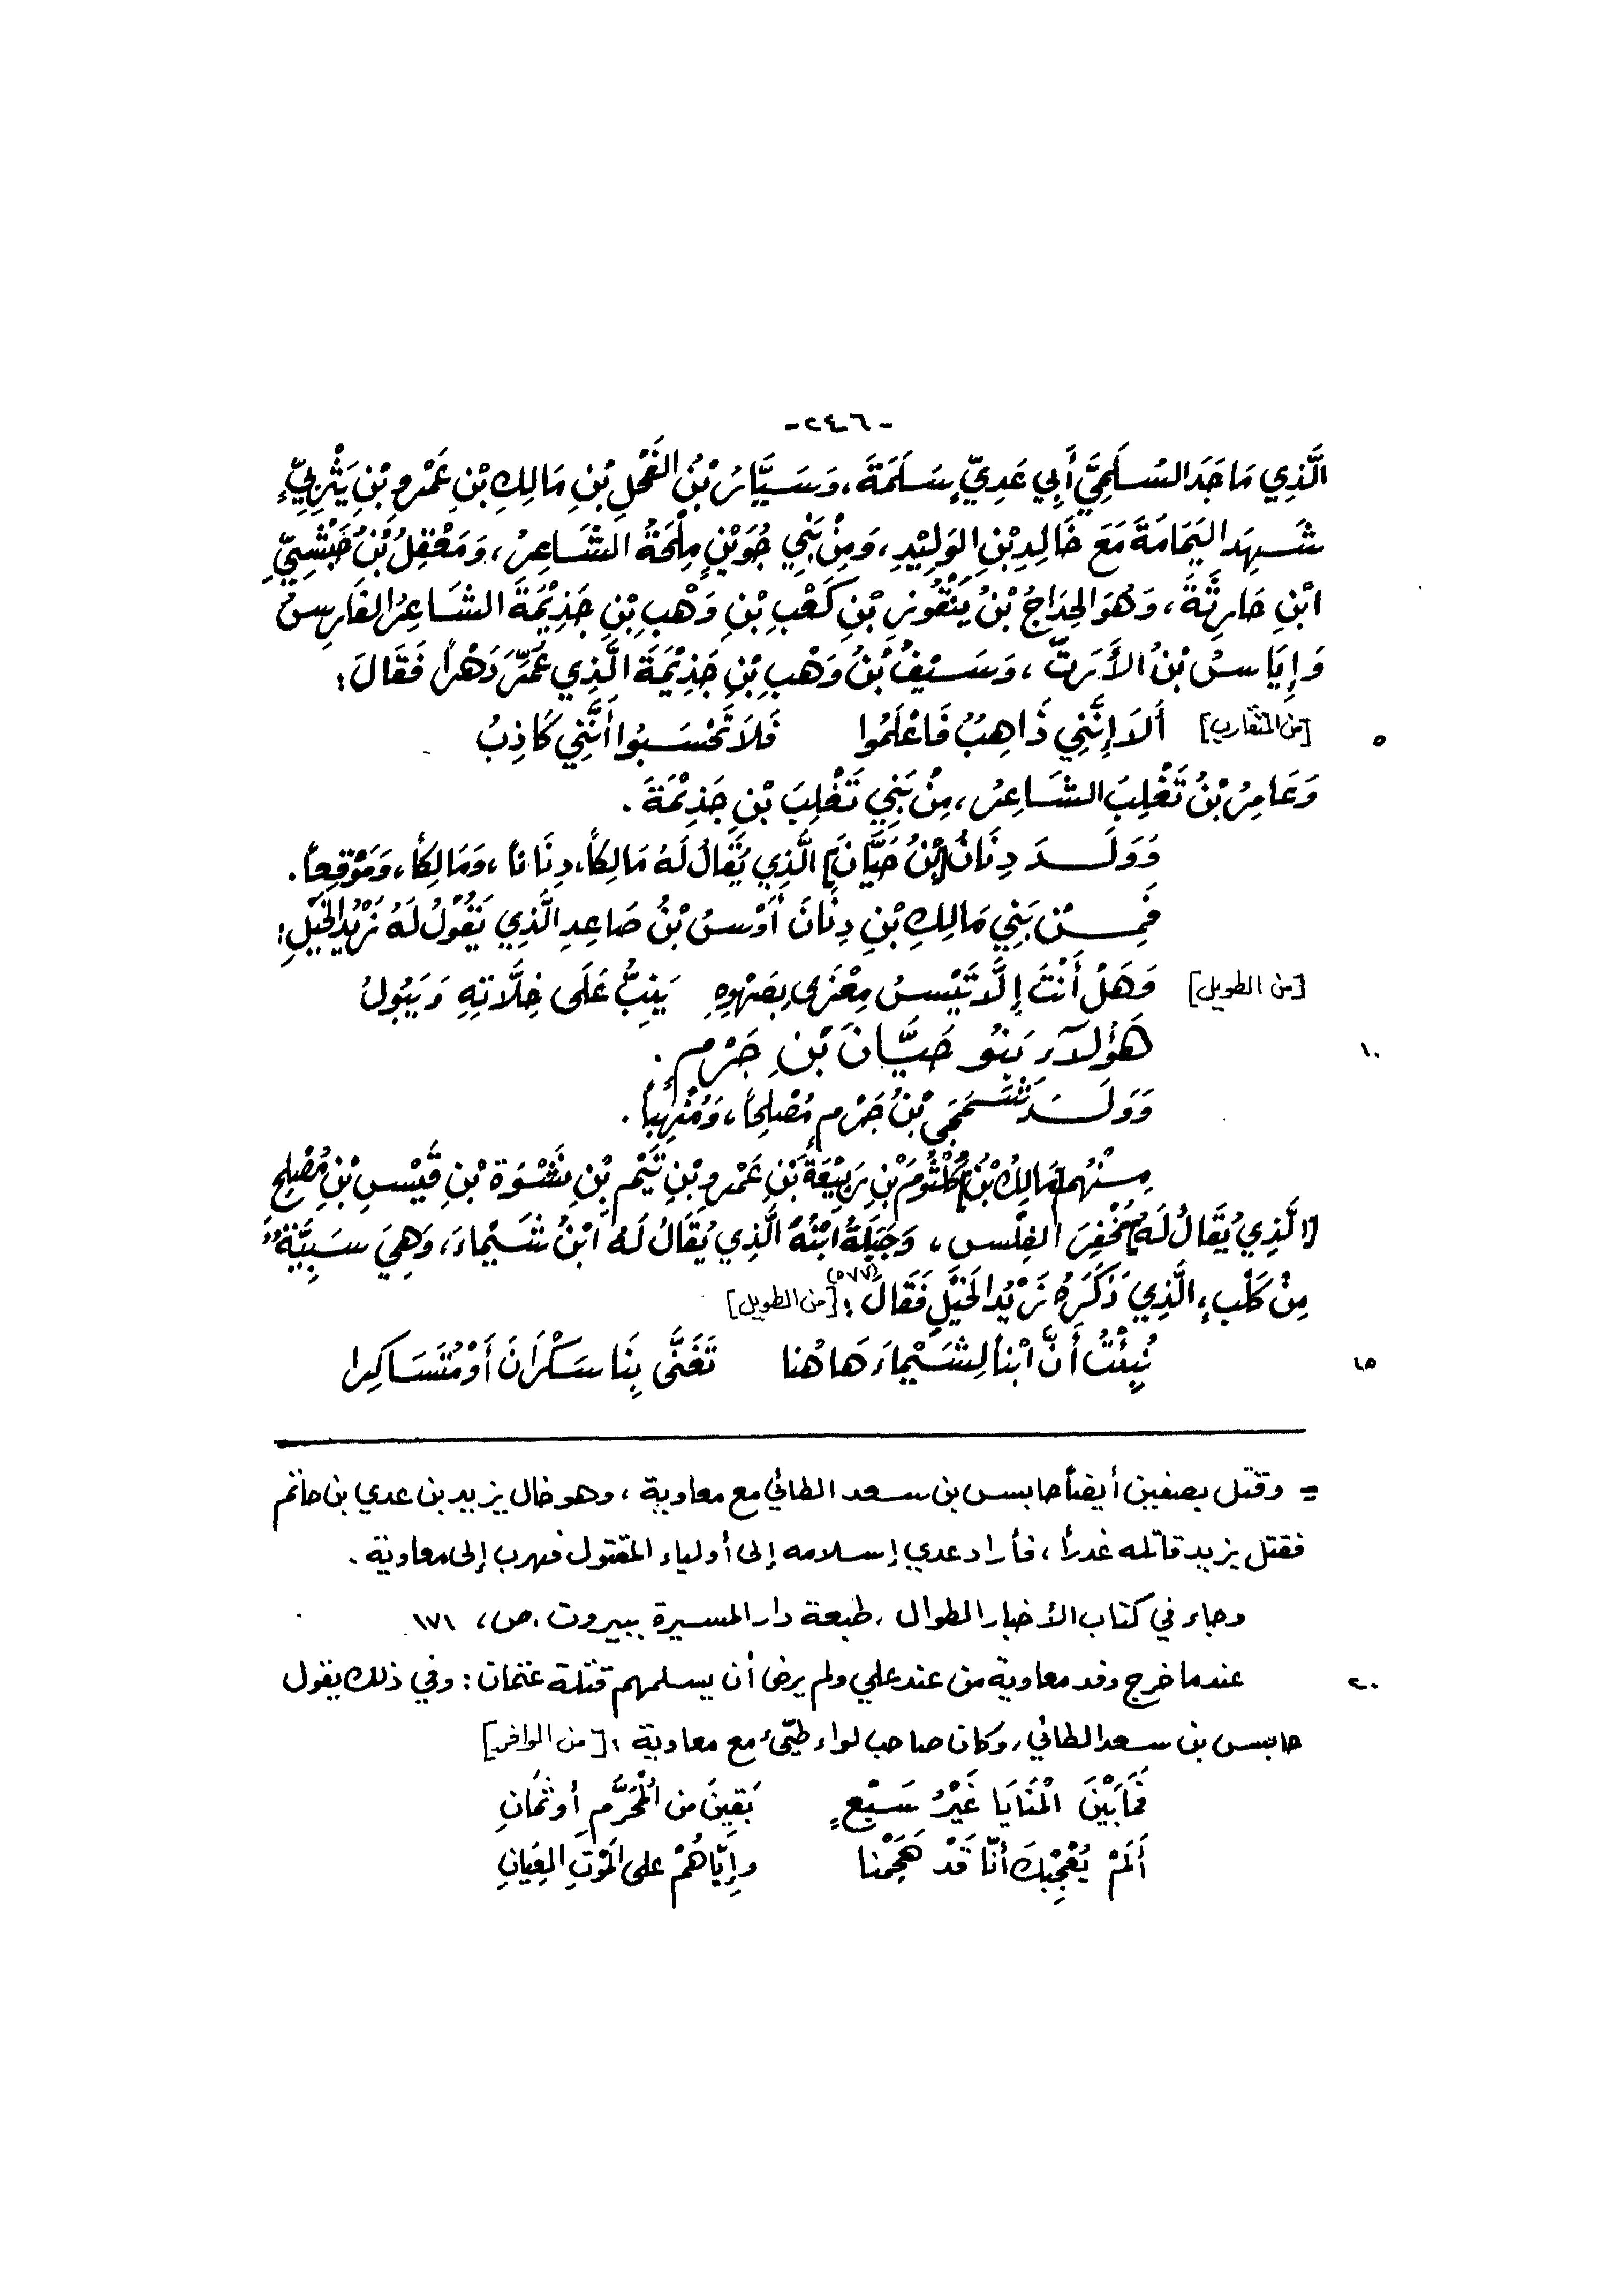 -٢٤٦-
الَّذِي مَاجَدَ السُلَمِيَّ أَبِي عَدِيٍّ سَلَمَةَ، وَسَيَّارُ بْنُ الفَحْلِ بْنِ مَالِكِ بْنِ عَمْرِو بْنِ يَثْرِبِيٍّ
شَهِدَ اليَمَامَةَ مَعَ خَالِدِ بْنِ الوَلِيْدِ، وَمِنْ بَنِي جُوَيْنٍ مِلْحَةُ الشَاعِرُ، وَمَعْقِلُ بْنُ حَبْشِيِّ
ابْنِ حَارِثَةَ، وَهُوَ الحِدَاجُ بْنُ يَنْقُوزِ بْنِ كَعْبِ بْنِ وَهْبِ بْنِ جَذِيْمَةَ الشَاعِرُ الفَارِسُ
وَإِيَاسُ بْنُ الأَرَتِّ، وَسَيْفُ بْنُ وَهْبِ بْنِ جَذِيْمَةَ الَّذِي عُمِّرَ دَهْراً فَقَالَ:
٥ [من المتقارب] أَلَا إِنَّنِي ذَاهِبٌ فَاعْلَمُوا فَلَا تَحْسَبُوا أَنَّنِي كَاذِبُ
وَعَامِرُ بْنُ تَغْلِبَ الشَاعِرُ، مِنْ بَنِي تَغْلِبَ بْنِ جَذِيْمَةَ.
وَوَلَدَ دِنَانُ [بْنُ حَيَّانَ] الَّذِي يُقَالُ لَهُ مَالِكاً، دِنَاناً، وَمَالِكاً، وَمَوْقِعاً.
فَمِنْ بَنِي مَالِكِ بْنِ دِنَانَ أَوْسُ بْنُ صَاعِدِ الَّذِي يَقُوْلُ لَهُ زَيْدُ الخَيْلِ:
[من الطويل] وَهَلْ أَنْتَ إِلَّا تَيْسُ مِعْزَى بِصَهْوِهِ يَنِبُّ عَلَى خِلَّاتِهِ وَيَبُولُ
١٠ هَؤُلَاءِ بَنُو حَيَّانَ بْنِ جَرْمٍ.
وَوَلَدَ شَمَجَى بْنُ جَرْمٍ مُصْلِحاً، وَمُنْهِباً.
مِنْهُم [مَالِكُ بْنُ] كُلْثُومَ بْنِ رَبِيْعَةَ بْنِ عَمْرِو بْنِ تَيْمِ بْنِ نَشْوَةَ بْنِ قَيْسِ بْنِ مُصْلِحٍ
[الَّذِي يُقَالُ لَهُ] مُخْفِرَ الفِلْسِ، وَجَبَلَةُ ابْنُهُ الَّذِي يُقَالُ لَهُ ابْنُ شَيْمَاءَ، وَهِيَ سَبِيَّةٌ
مِنْ كَلْبٍ، الَّذِي ذَكَرَهُ زَيْدُ الخَيْلِ فَقَالَ:(٥٧٧) [من الطويل]
١٥ نُبِئْتُ أَنَّ ابْناً لِشَيْمَاءَ هَاهُنا تَغَنَّى بِنَا سَكْرَانَ أَوْ مُتَسَاكِرا
= وقتل بصفين أيضاً حابس بن سعد الطائي مع معاوية، وهو خال يزيد بن عدي بن حاتم
فقتل يزيد قاتله غدراً، فأراد عدي إسلامه إلى أولياء المقتول فهرب إلى معاوية.
وجاء في كتاب الأخبار الطوال، طبعة دار المسيرة ببيروت، ص، ١٧١
٢٠ عندما خرج وفد معاوية من عند علي ولم يرض أن يسلمهم قتلة عثمان: وفي ذلك يقول
حابس بن سعد الطائي، وكان صاحب لواء طيّئ مع معاوية: [من الوافر]
فَمَا بَيْنَ الْمَنَايَا غَيْرُ سَبْعٍ بَقِينَ من المُحَرَّمِ أو ثَمَانِ
أَلَمْ يُعْجِبْكَ أنّا قَدْ هَجَمْنا وإِيّاهُمْ على المَوْتِ العِيَانِ